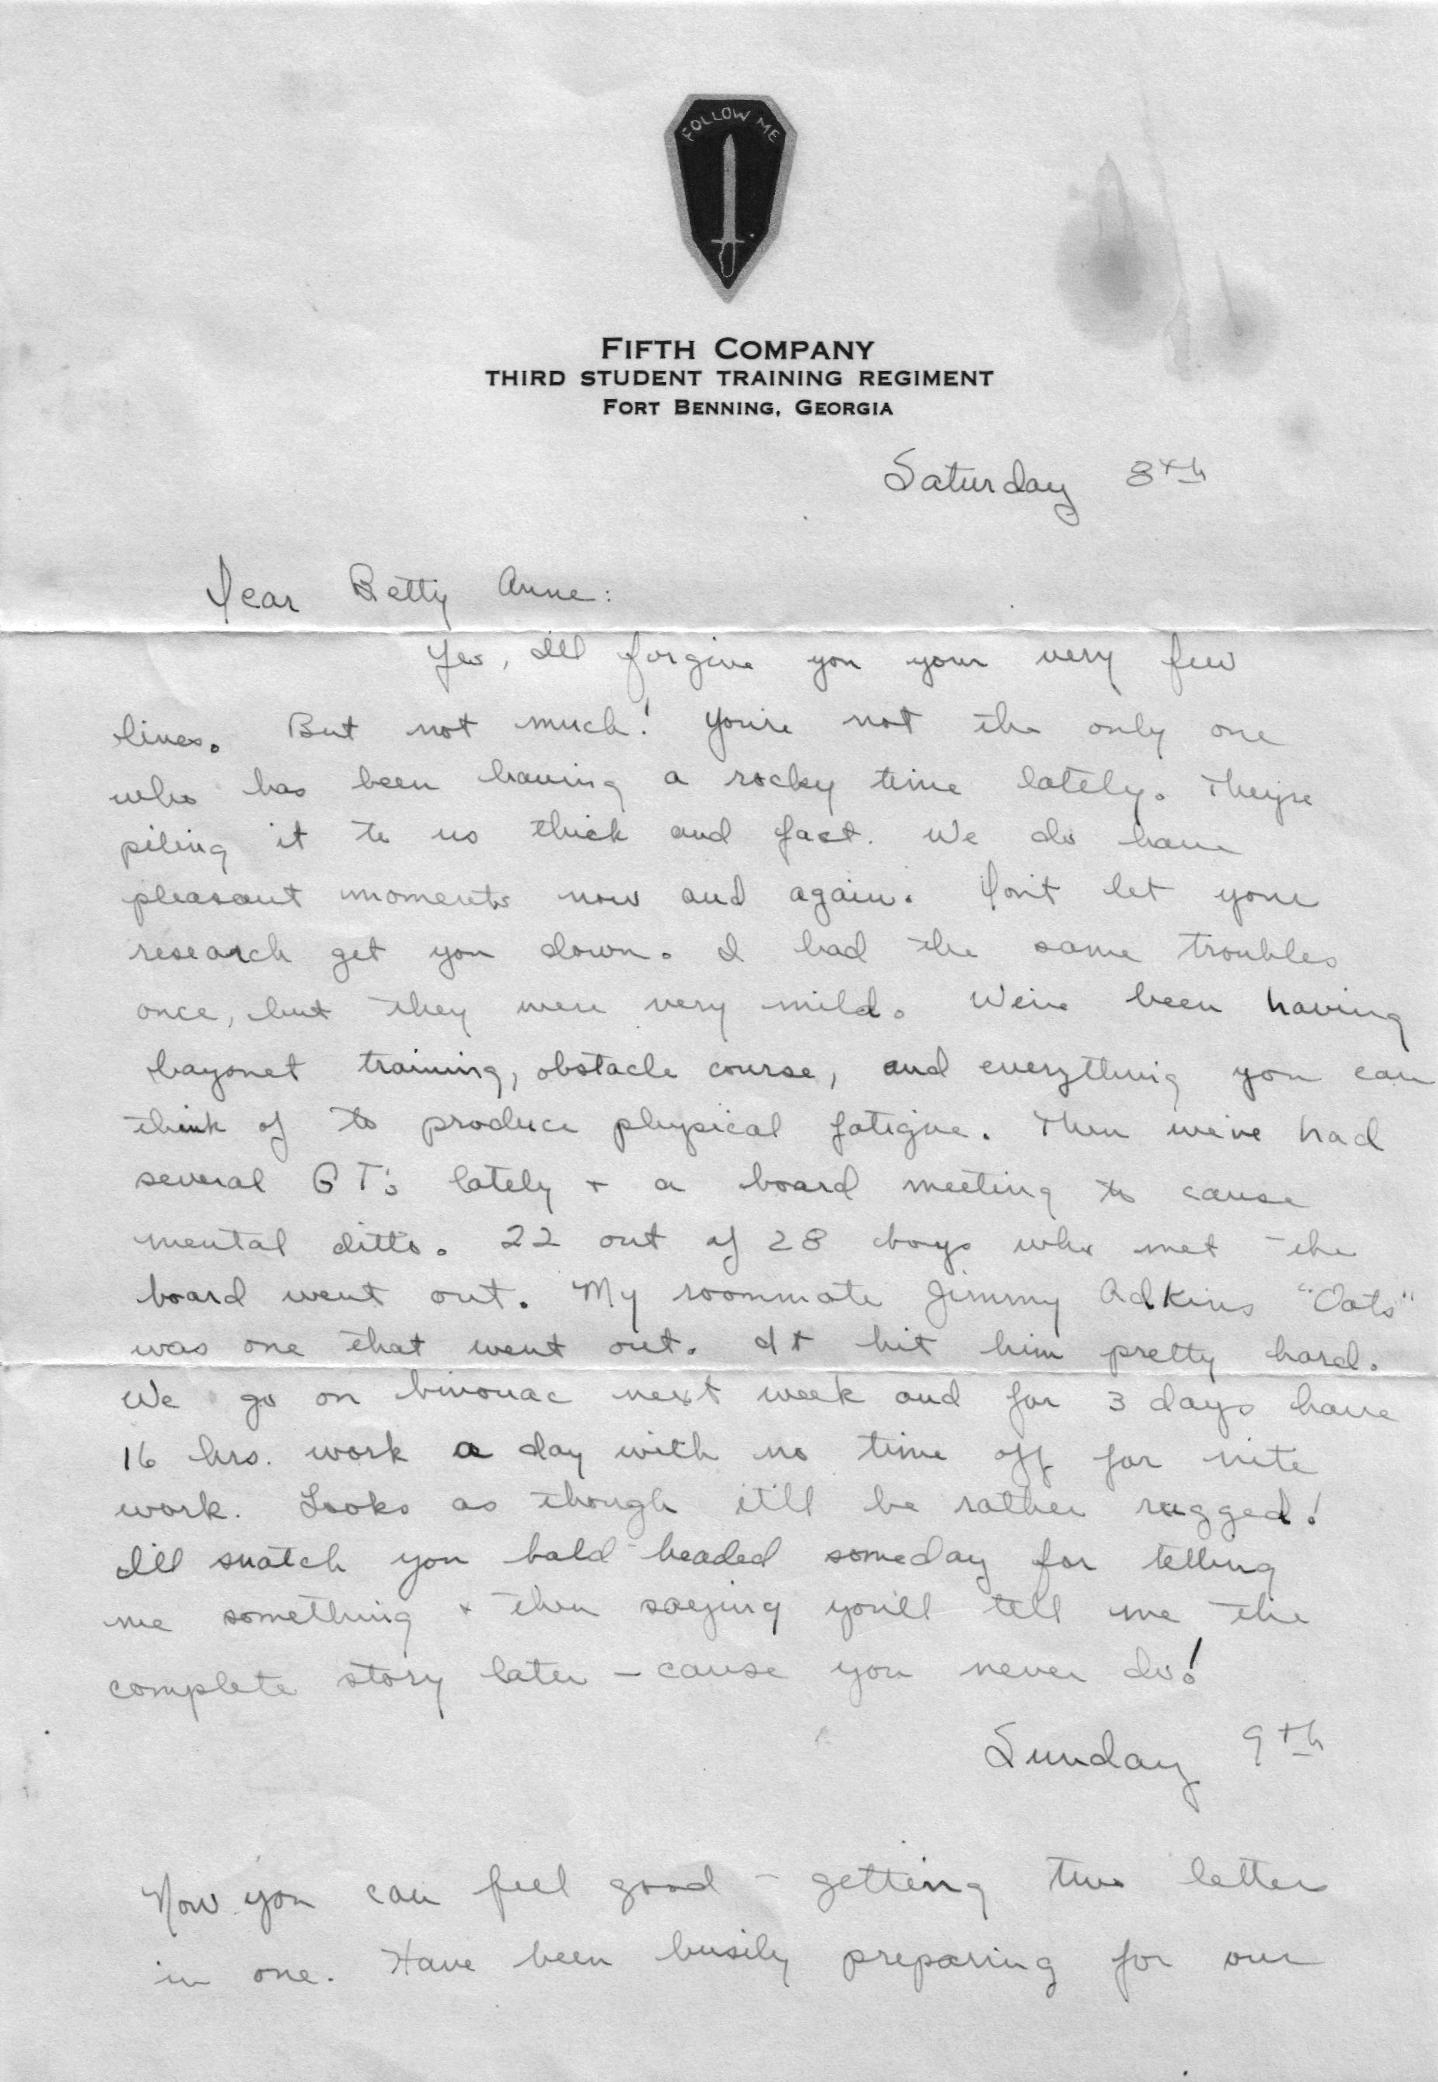 FOLLOW ME
FIFTH COMPANY
THIRD STUDENT TRAINING REGIMENT
FORT BENNING, GEORGIA
Saturday 8th
Dear Betty Anne:
Yes, I'll forgive you your very few
lines. But not much! You're not the only one
who has been having a rocky time lately. They're
piling it to us thick and fast. We do have
pleasant moments now and again. Don't let your
research get you down. I had the same troubles
once, but they were very mild. We've been having
bayonet training, obstacle course, and everything you can
think of to produce physical fatigue. Then we've had
several GT's lately + a board meeting to cause
mental ditto. 22 out of 28 boys who met the
board went out. My roommate Jimmy Adkins "Oats"
was one that went out. It hit him pretty hard.
We go on bivouac next week and for 3 days have
16 hrs. work a day with no time off for nite
work. Looks as though it'll be rather rugged!
I'll snatch you bald-headed someday for telling
me something + then saying you'll tell me the
complete story later - cause you never do!
Sunday 9th
Now you can feel good - getting two letters
in one. Have been busily preparing for our